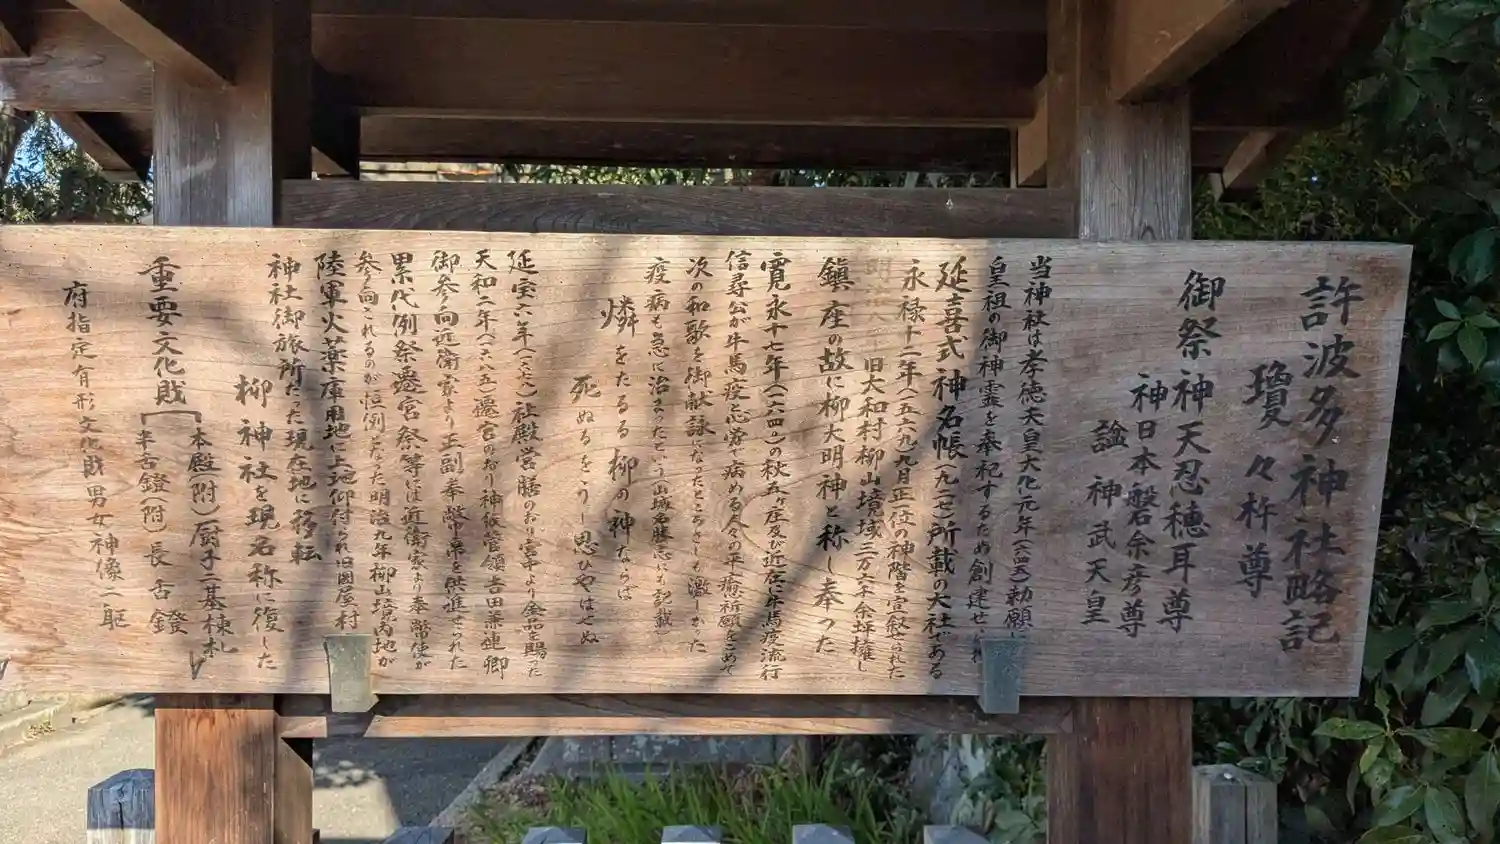 許波多神社略記
御祭神
瓊々杵尊
神天忍穂耳尊
神日本磐余彦尊
諡 神武天皇
当神社は孝徳天皇大化元年(六四五)勅願に
皇祖の御神霊を奉祀するため創建せ
延喜式神名帳(九二七)所載の大社である
永禄十二年(一五六九)九月正一位の神階を宣叙された
旧大和村柳山境域三万六千余坪擁し
鎮座の故に柳大明神と称し奉った
寛永十七年(一六四〇)の秋五ヶ庄及び近在に牛馬疫流行
信尋公が牛馬疫を忘れ病める人々の平癒祈願をこめて
次の和歌を御献詠になったところさしも激しかった
疫病も急に治まったという(山城名勝志にも記載)
憐をたるる柳の神ならば
死ぬるをうしと思ひやはせぬ
延宝六年(一六七八)社殿営膳のおり宮中より金品を賜った
天和二年(一六八五)遷宮のおり神祇管領吉田兼連卿
御参向近衛家より王副奉幣中啓を供進せられた
累代例祭遷宮祭等には近衛家より奉幣使が
参向されるのが恒例だった明治九年柳山境内地が
陸軍火薬庫用地に上地仰付られ旧岡屋村
神社御旅所だった現在地に移転
柳神社を現名称に復した
重要文化財
本殿(附)厨子三基棟札
半舌鐙(附)長舌鐙
府指定有形文化財男女神像二躯